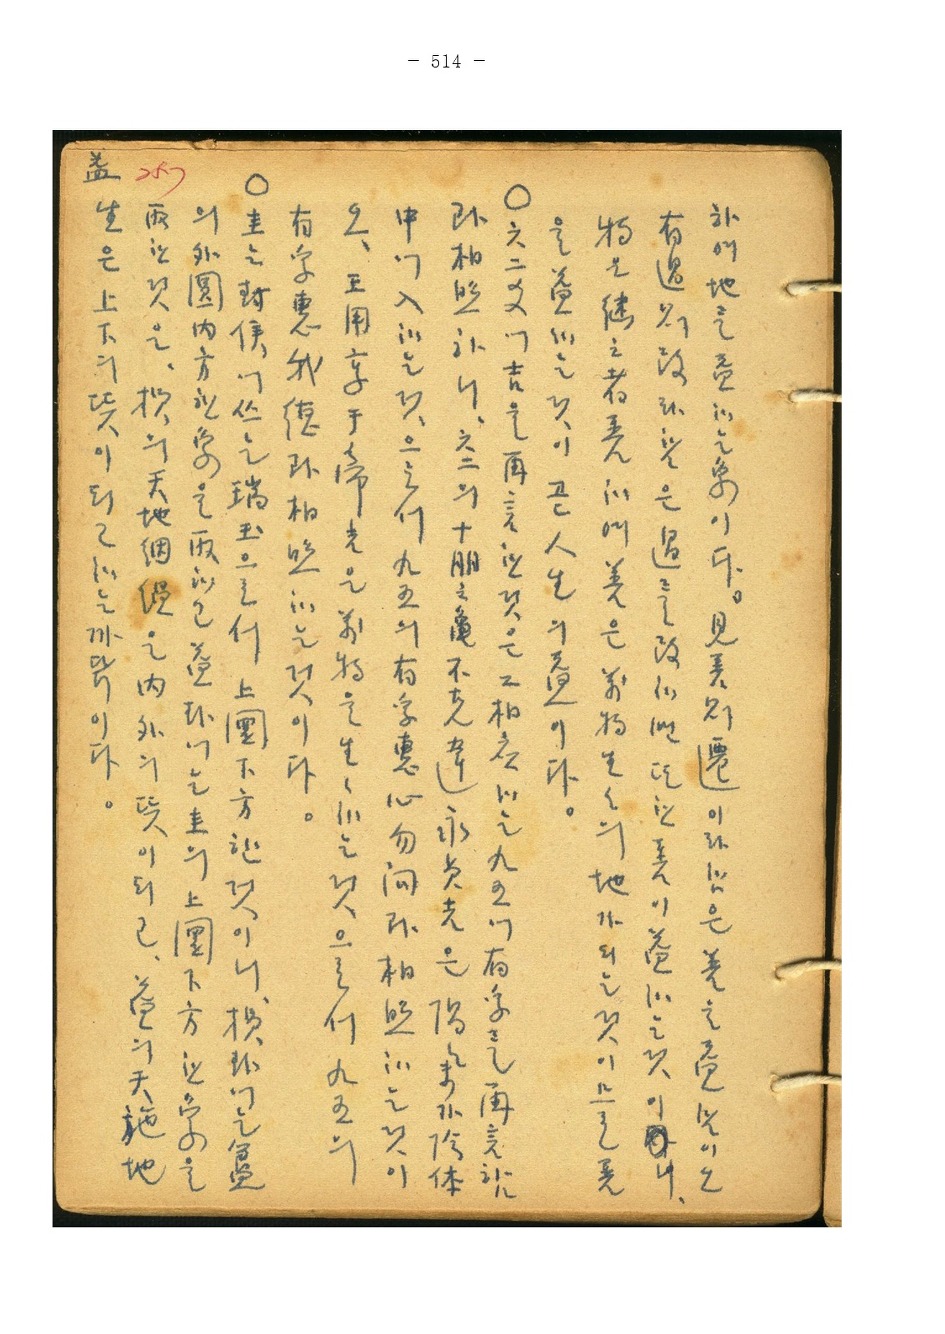 - 514 -
하여 地를 益하는 象이다。見善則遷이라 함은 善을 益함이오
有過則改라 함은 過를 改하면 또한 善이 益하는 것이니、
物은 繼之者善하여 善은 萬物生生의 地가 되는 것이므로 善
을 益하는 것이 곧 人生의 益이다。
○ 六二爻에 吉을 再言한 것은 그 相應하는 九五에 有孚를 再言함
과 相照하니、六二의 十朋之龜不克違 永貞吉은 陽氣가 陰体
中에 入하는 것으로서 九五의 有孚惠心勿問과 相照하는 것이
오、王用享于帝吉은 萬物을 生生하는 것으로서 九五의
有孚惠我德과 相照하는 것이다。
○ 圭는 封侯에 쓰는 瑞玉으로서 上圓下方한 것이니、損卦에는 簋
의 外圓內方한 象을 取하고 益卦에는 圭의 上圓下方한 象을
取한 것은、損의 天地絪縕은 內外의 뜻이 되고、益의 天施地
生은 上下의 뜻이 되고 하는 까닭이다。
益 257